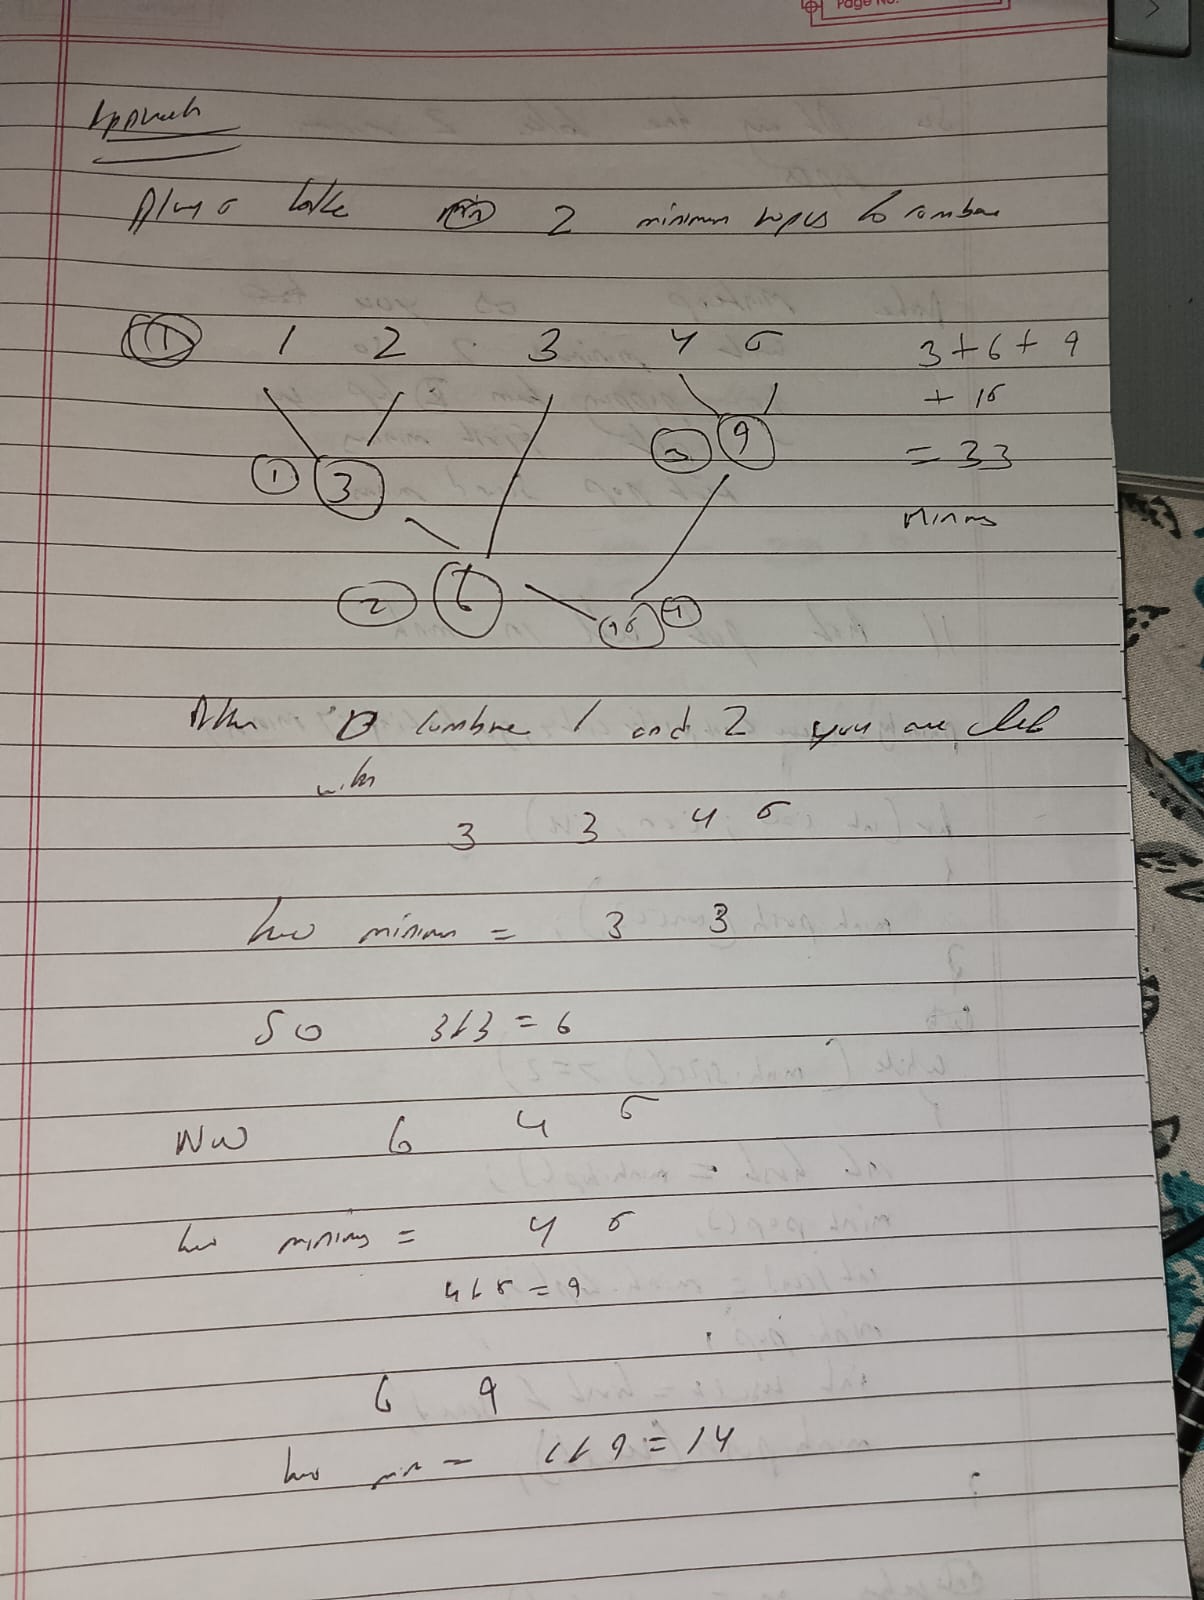 Page No.
Approach
Always take 2 minimum ropes to combine
1 2 3 4 5 3 + 6 + 9
+ 15
3 9
= 33
1 3
Minimum
2 6 15 4
After combine 1 and 2 you are left
with
3 3 4 5
two minimum = 3 3
So 3+3 = 6
Now 6 4 5
two minimum = 4 5
4+5 = 9
6 9
two min = 6+9 = 14